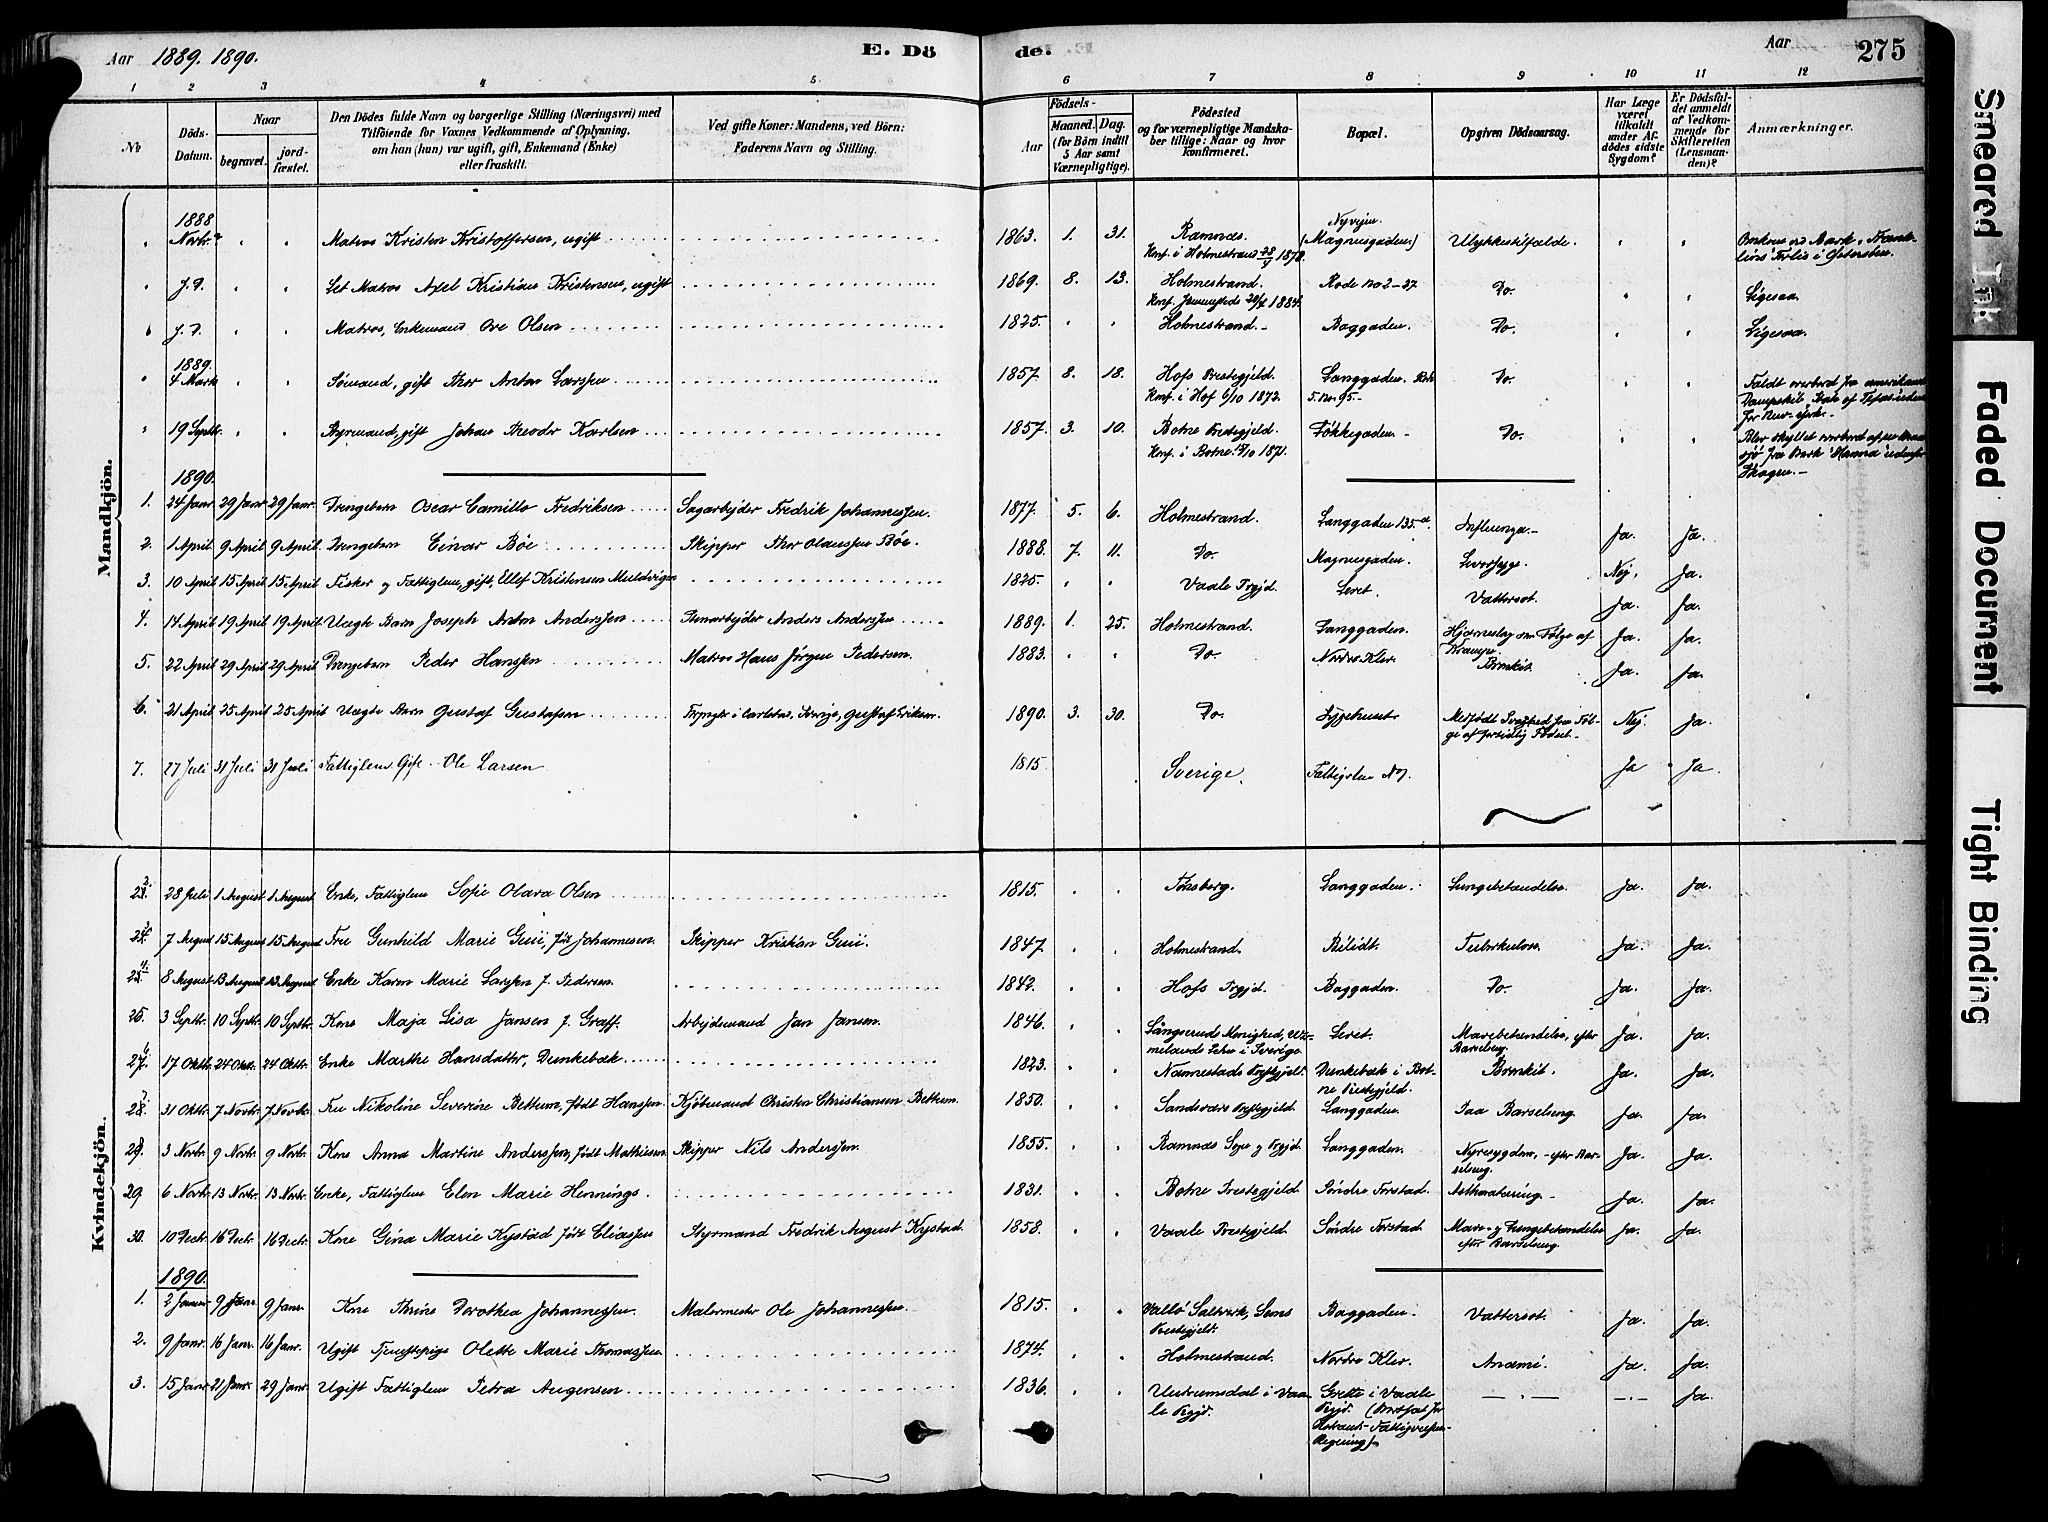 Aar 1889. 1890. E. Dö de. Aar 275
1 2 3 4 5 6 7 8 9 10 11 12
No
Döds-Datum.
Naar
begravet. jordfæstet.
Den Dödes fulde Navn og borgerlige Stilling (Næringsvei) med
Tilföiende for Voxnes Vedkommende af Oplysning,
om han (hun) var ugift, gift, Enkemand (Enke)
eller fraskilt.
Ved gifte Koner: Mandens, ved Börn:
Faderens Navn og Stilling.
Födsels-
Aar Maaned. Dag.
(for Börn indtil
5 Aar samt
Værnepligtige).
Födested
og for værnepligtige Mandskaber tillige: Naar og hvor
konfirmeret.
Bopæl.
Opgiven Dödsaarsag.
Har Læge
været
tilkaldt
under Afdödes sidste
Sygdom?
Er Dödsfaldet anmeldt
af Vedkommende for
Skifteretten
(Lensmanden)?
Anmærkninger.
Mandkjön.
1888
Novbr. " " Matros Kristen Kristoffersen, ugift 1863. 1. 31. Ramnæs. Konf. i Holmestrand 1878. Nyvejen. (Magnusgaden.) Ulykkestilfælde. " "
" J. D. " " Let Matros Axel Kristian Kristensen, ugift 1869. 8. 13. Holmestrand. Rode No 2-27 Do. " " Ligesaa.
" J. D. " " Matros, Enkemand Ove Olsen 1825. " " Holmestrand. Baggaden. Do. " " Ligesaa.
1889.
" 4 Marts " " Sömand, gift Thor Anton Larsen 1857. 8. 18. Hofs Prestegjeld. Konf. i Hof 6/10 1872. Langgaden. Rode 5. No 95. Do. " " Faldt overbord fra
" 19 Septbr. " " Styrmand, gift Johan Theodor Karlsen 1857. 3. 10. Botne Prestegjeld. Konf. i Botne 1871. Tökkegaden. Do. " " Blev skyllet overbord
Skagen.
1890.
1. 24 Janr 29 Janr 29 Janr. Drengebarn Oscar Camillo Fredriksen Sagarbejder Fredrik Johannessen. 1877. 5. 6. Holmestrand. Langgaden 135. Influenza. Ja. Ja.
2. 1 April 9 April 9 April Drengebarn Einar Böe Skipper Thor Olaussen Böe. 1888. 7. 11. Do. Magnusgaden. Leversyge. Nej. Ja.
3. 10 April 15 April 15 April Fisker og Fattiglem, gift, Ellef Kristensen Muldvigen 1825. " " Vaale Prgjd. Leret. Vattersot. Ja. Ja.
4. 14 April 19 April 19 April Uægte Barn Joseph Anton Anderssen Stenarbejder Anders Anderssen 1889. 1. 25. Holmestrand. Langgaden. Hjerneslag som Fölge af Krampe. Ja. Ja.
5. 22 April 29 April 29 April Drengebarn Peder Hanssen Matros Hans Jörgen Pedersen. 1883. " " Do. Nordre Klev. Bronkit. Ja. Ja.
6. 21 April 25 April 25 April Uægte Barn Gustaf Gustafsen i Carlstad, Sverige, Gustaf Eriksen. 1890. 3. 30. Do. Sygehuset. Medfödt Svaghed som Fölge af fortidlig Födsel. Nej. Ja.
7. 27 Juli 31 Juli 31 Juli Fattiglem Gift Ole Larsen 1815 Sverige. Fattiglem Ja Ja.
Kvindekjön.
2. 23. 28 Juli 1 August 1 August Enke, Fattiglem Sofie Olava Olsen 1815. " " Tönsberg. Langgaden. Lungebetændelse. Ja. Ja.
3. 24. 7 August 15 August 15 August Fru Gunhild Marie Guii, född Johannesen. Skipper Kristian Guii. 1847. " " Holmestrand. Tuberkulose. Ja. Ja.
4. 25. 8 August 13 August 13 August Enke Karen Marie Larssen f. Pedersen. 1842. " " Hofs Prgjd. Baggaden. Do. Ja. Ja.
26. 3 Septbr. 10 Septbr. 10 Septbr. Kone Maja Lisa Jansen f. Graff. Arbejdsmand Jan Jansen. 1846. " Långseruds Menighed, Vermelands Lehn i Sverige. Leret. Mavebetændelse, efter Barselseng. Ja. Ja.
27. 17 Oktbr. 24 Oktbr. 24 Oktbr. Enke Marthe Hansdatter, Dunkebæk 1823. " " Nannestads Prestgjeld. Dunkebæk i Botne Prestegjeld. Bronkit. Ja. Ja.
28. 31 Oktbr. 7 Novbr. 7 Novbr. Fru Nikoline Severine Bettum, födt Hanssen Kjöbmand Christen Christiansen Bettum. 1850. " " Sandsværs Prestegjeld. Langgaden. Paa Barselseng. Ja. Ja.
29. 3 Novbr. 9 Novbr. 9 Novbr. Kone Anna Martine Anderssen, födt Mathiesen Skipper Nils Anderssen. 1855. " " Ramnæs Sogn og Prgjd. Langgaden. Nyresygdom, efter Barselseng. Ja. Ja.
29. 6 Novbr. 13 Novbr. 13 Novbr. Enke, Fattiglem Elen Marie Hennings. 1831. " " Botne Prestegjeld. Söndre Forstad. Ja. Ja.
30. 10 Decbr. 16 Decbr. 16 Decbr. Kone Gina Marie Kystad födt Eliassen Styrmand Fredrik August Kystad. 1858. " " Vaale Prestegjeld. Söndre Forstad. Mave- og Lungebetændelse efter Barselseng. Ja. Ja.
1890.
1. 2 Januar 9 Janr. 9 Janr. Kone Thrine Dorothea Johannessen. Malermester Ole Johannessen. 1815. " " Vallö Saltverk, Sems Prestegjeld. Baggaden. Vattersot. Ja. Ja.
2. 9 Janr. 16 Janr. 16 Janr. Ugift Tjenestepige Olette Marie Thomassen. 1874. " " Holmestrand. Nordre Klev. Anæmi. Ja. Ja.
3. 15 Janr 21 Janr. 29 Janr. Ugift Fattiglem Petra Augensen. 1836. " " Undrumsdal i Vaale Prgjd. Grette i Vaale Prgjd. (Bortsat for Holmestr. Fattigvæsens Regning) — " — — " — Ja.
Smeared Ink
Faded Document
Tight Binding